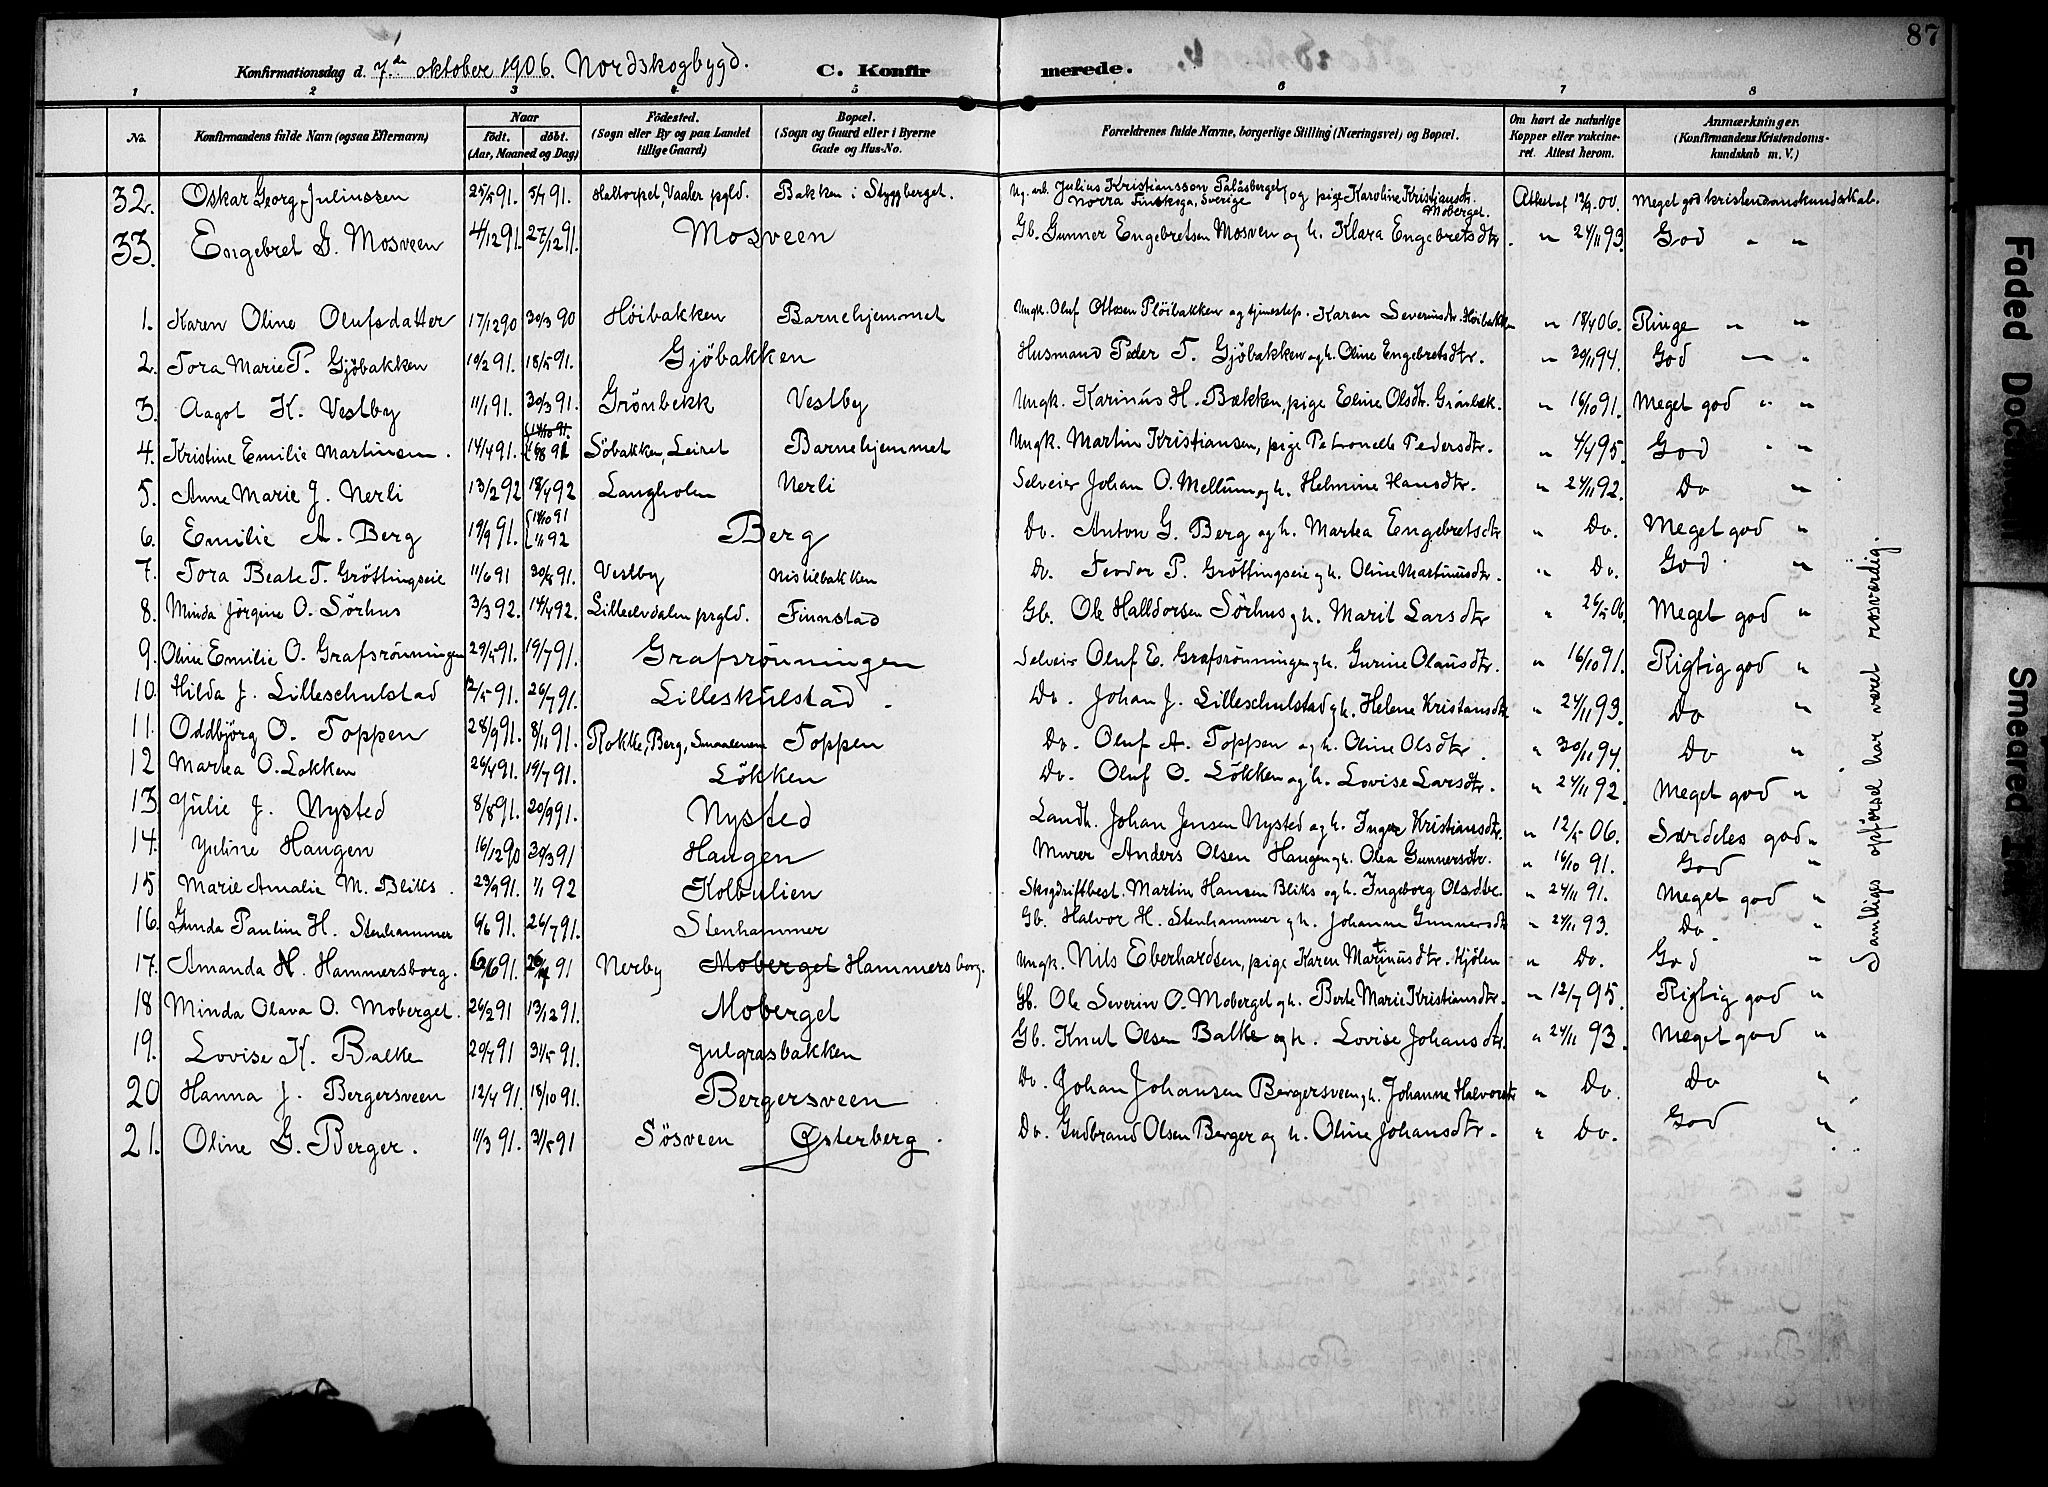 87
Konfirmationsdag d. 7de oktober 1906. Nordskogbygd. C. Konfirmerede.
1 2 3 4 5 6 7 8
No. Konfirmandens fulde Navn (ogsaa Efternavn) Naar født. døbt. (Aar, Maaned og Dag) Fødested. (Sogn eller By og paa Landet tillige Gaard) Bopæl. (Sogn og Gaard eller i Byerne Gade og Hus-No. Forældrenes fulde Navne, borgerlige Stilling (Næringsvei) og Bopæl. Om havt de naturlige Kopper eller vakcineret. Attest herom. Anmærkninger. (Konfirmandens Kristendomskundskab m. V.)
32. Oskar Georg Juliussen 25/5 91. 5/7 91. Haltorpet, Vaaler pgld. Bakken i Styggberget. Ug. arb. Julius Kristiansson Palåsberget, Norra Finskoga, Sverige og pige Karoline Kristiansdtr. Moberget. Attest af 13/9 00. Meget god kristendomskundskab.
33. Engebret G. Mosveen 4/12 91. 27/12 91. Mosveen Gb. Gunner Engebretsen Mosven og h. Klara Engebretsdtr. " 24/11 93. God " "
1. Karen Oline Olufsdatter 17/12 90 30/3 90 Høibakken Barnehjemmet Ungk. Oluf Ottosen Pløibakken og tjenestep. Karen Severinsdtr. Høibakken " 18/4 06. Ringe " "
2. Tora Marie P. Gjøbakken 10/2 91. 18/5 91. Gjøbakken Husmand Peder T. Gjøbakken og h. Oline Engebretsdtr. " 30/11 94. God " "
3. Aagot K. Vestby 11/1 91. 30/3 91. Grønbekk Vestby Ungk. Karinus H. Bækken, pige Eline Olsdtr. Grønbæk. " 16/10 91. Meget god " "
4. Kristine Emilie Martinsen. 14/4 91. Søbakken, Leiret Barnehjemmet Ungk. Martin Kristiansen, pige Petronelle Pedersdtr. " 4/4 95. God " "
5. Anne Marie J. Nerli 13/2 92 18/4 92 Langholen Nerli Selveier Johan O. Mellum og h. Helmine Hansdtr. " 24/11 92. Do "
6. Emilie A. Berg 19/9 91. 18/10 91 1/1 92 Berg Do. Anton G. Berg og h. Martea Engebretsdtr " Do. Meget god "
7. Tora Beate T. Grøttingseie 11/6 91 30/8 91. Vestby Nistilbakken Do. Teodor P. Grøttingseie og h. Oline Martinusdtr. " Do. God "
8. Minda Jørgine O. Sørhus 3/3 92. 14/4 92. Lilleelvdalen prgld. Finnstad Gb. Ole Halldorsen Sørhus og h. Marit Larsdtr " 26/5 06. Meget god "
9. Oline Emilie O. Grafsrønningen 29/5 91. 19/7 91. Grafsrønningen Selveier Oluf E. Grafsrønningen og h. Gurine Olausdtr. " 16/10 91. Rigtig god "
10. Hilda J. Lilleschulstad 2/5 91. 26/7 91. Lilleskulstad. Do. Johan J. Lilleschulstad og h. Helene Kristiansdtr " 24/11 93. Do "
11. Oddbjørg O. Toppen 28/9 91. 8/11 91. Rokke, Berg, Smaalenene Toppen Do. Oluf A. Toppen og h. Oline Olsdtr. " 30/11 94. Do "
12 Martea O. Løkken 26/4 91. 19/7 91. Løkken Do. Oluf O. Løkken og h. Lovise Larsdtr. " 24/11 92. Meget god "
13. Julie J. Nysted 8/8 91. 20/9 91. Nysted Landh. Johan Jensen Nysted og h. Inger Kristiansdtr. " 12/5 06. Særdeles god "
14. Juline Haugen 16/12 90 30/3 91 Haugen Murer Anders Olsen Haugen og h. Olea Gunnersdtr. " 16/10 91. God "
15 Marie Amalie M. Bliks. 23/9 91. 1/1 92 Kolbulien Skogdriftbest. Martin Hansen Bliks og h. Ingeborg Olsdtr. " 24/11 91. Meget god "
16. Gunda Pauline H. Stenhammer 6/6 91. 26/7 91. Stenhammer Gb. Halvor H. Stenhammer og h. Johanne Gunnersdtr " 24/11 93. Do. "
17. Amanda N. Hammersborg. 91. 91 Nerby Moberget Hammersborg. Ungk. Nils Eberhardsen, pige Karen Martinusdtr. Kjølen " Do. God "
18 Minda Olava O. Moberget. 26/2 91 13/12 91. Moberget Gb. Ole Severin O. Moberget og h. Berte Marie Kristiansdtr. " 12/7 95. Rigtig god "
19. Lovise K. Balke 20/4 91 31/5 91. Julgrasbakken Gb. Knut Olsen Balke og h. Lovise Johansdtr. " 24/11 93. Meget god "
20 Hanna J. Bergersveen 12/4 91. 18/10 91. Bergersveen Do. Johan Johansen Bergersveen og h. Johanne Halvorsdtr " Do. Do "
21. Oline G. Berger. 11/3 91. 31/5 91 Søsveen Østerberg. Do. Gudbrand Olsen Berger og h. Oline Johansdtr. " Do. God "
Samtliges opførsel har været rosværdig.
Faded Document
Smeared Ink